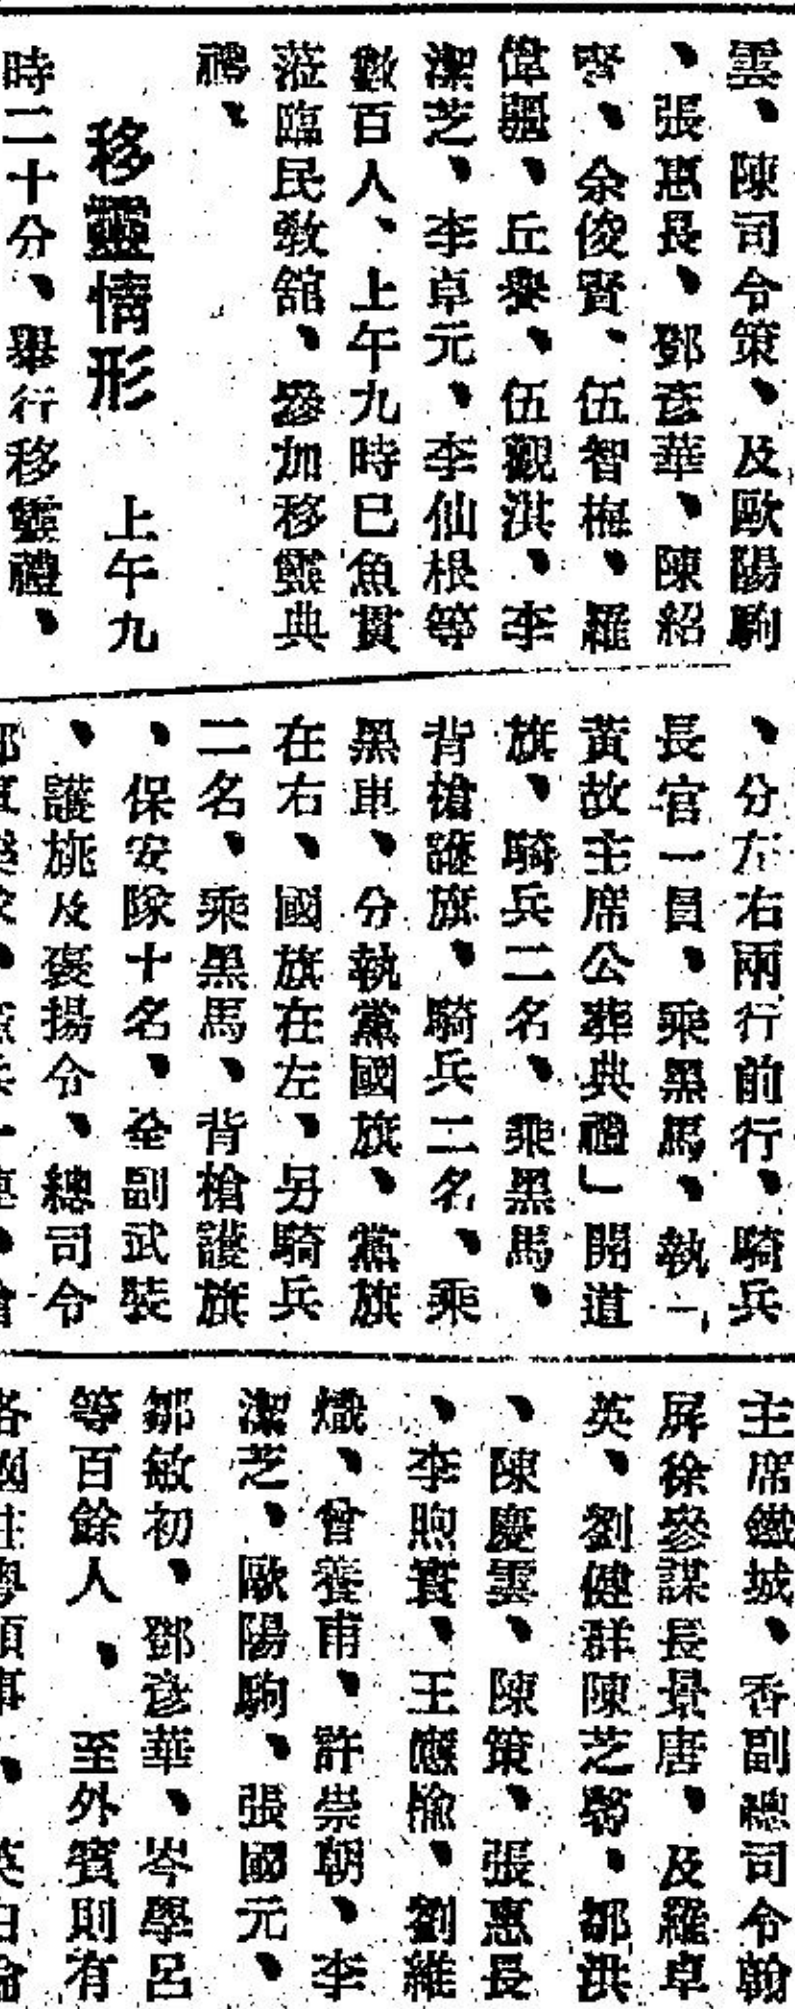 雲、陳司令策、及歐陽駒
、張惠長、鄧彥華、陳紹
、余俊賢、伍智梅、羅
偉疆、丘譽、伍觀淇、李
潔芝、李卓元、李仙根等
數百人、上午九時巳魚貫
蒞臨民敎舘、參加移靈典
禮、
移靈情形　上午九
時二十分、舉行移靈禮、
、分左右兩行前行、騎兵
長官一員、乘黑馬、執「
黃故主席公葬典禮」開道
旗、騎兵二名、乘黑馬、
背槍護旗、騎兵二名、乘
黑車、分執黨國旗、黨旗
在右、國旗在左、另騎兵
二名、乘黑馬、背槍護旗
、保安隊十名、全副武裝
、護旐及褒揚令、總司令
主席鐵城、香副總司令翰
屏徐參謀長景唐、及羅卓
英、劉健群陳芝馨、鄒洪
、陳慶雲、陳策、張惠長
、李煦寰、王應楡、劉維
熾、曾養甫、許崇朝、李
潔芝、歐陽駒、張國元、
鄒敏初、鄧彥華、岑學呂
等百餘人、至外賓則有